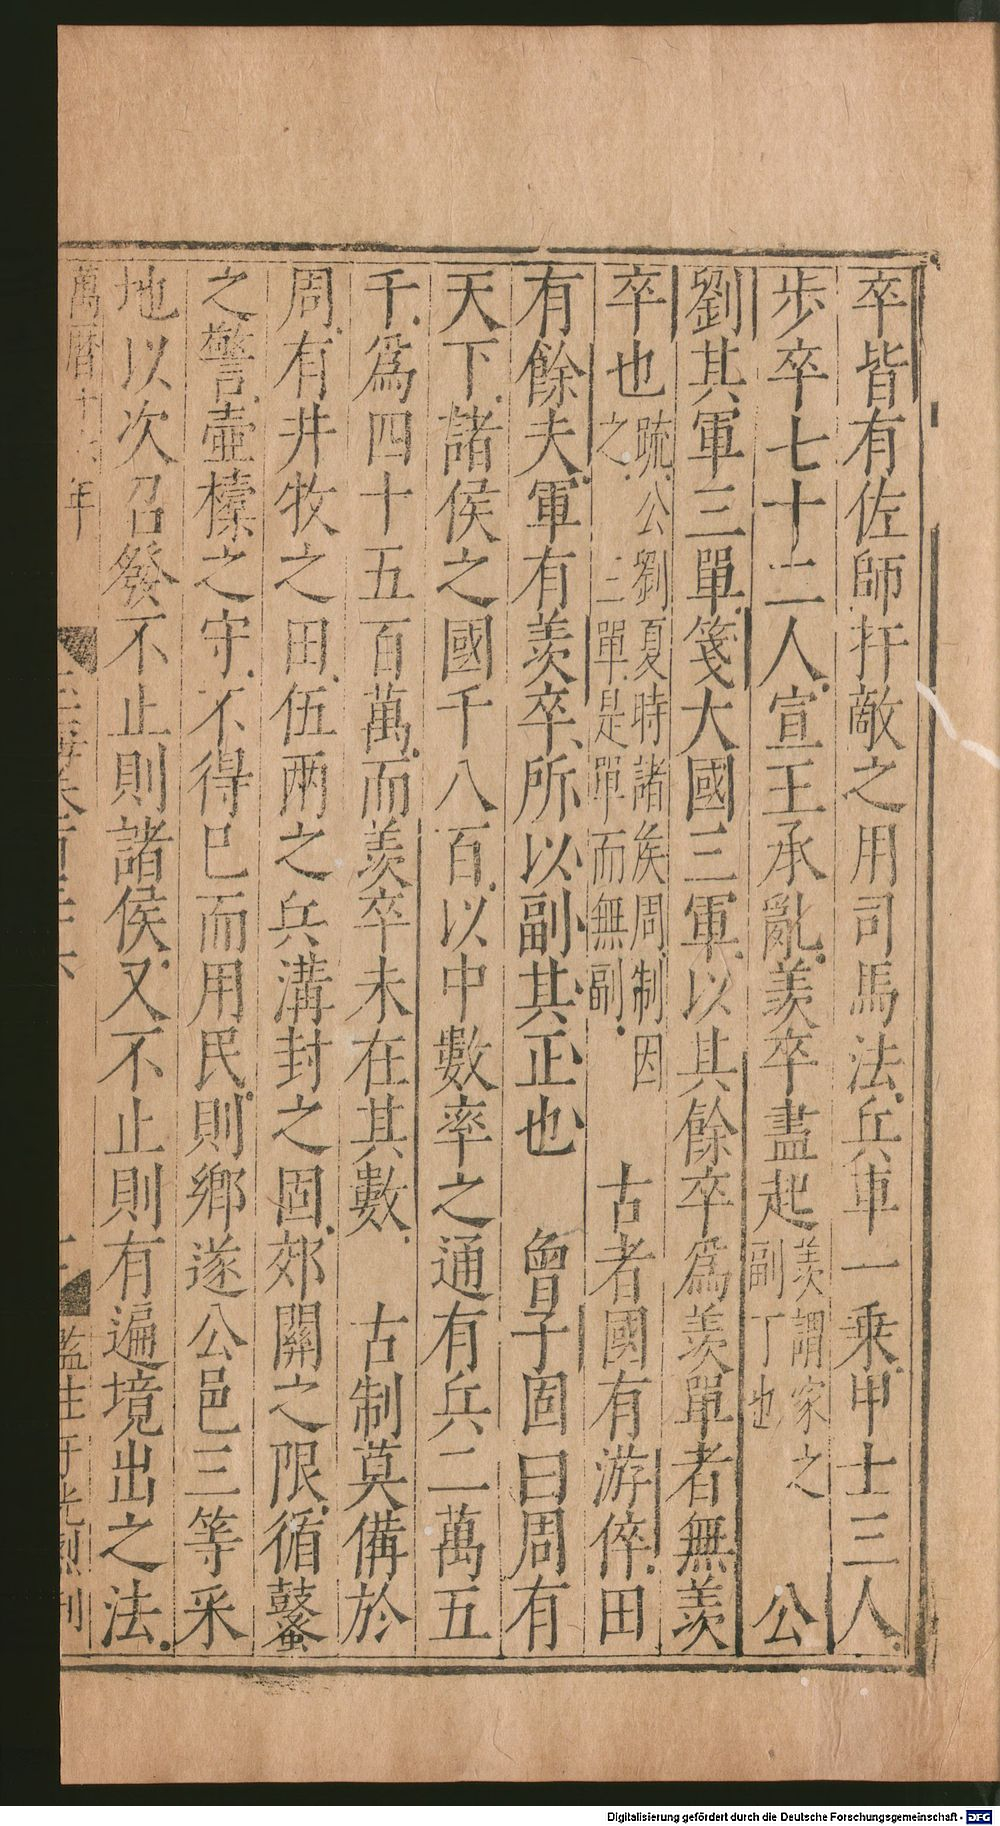 卒皆有佐師扞敵之用司馬法兵車一乘甲士三人
步卒七十二人宣王承亂羨卒盡起羨謂家之副丁也 公
劉其軍三單箋大國三軍以其餘卒爲羨單者無羨
卒也疏公劉夏時諸侯周制因之三單是單而無副 古者國有游倅田
有餘夫軍有羨卒所以副其正也 曾子固曰周有
天下諸侯之國千八百以中數率之通有兵二萬五
千爲四十五百萬而羨卒未在其數 古制莫備於
周有井牧之田伍兩之兵溝封之固郊關之限循鼜
之警壺㯓之守不得已而用民則鄉遂公邑三等采
地以次召發不止則諸侯又不止則有遍境出之法
萬曆十六年 監生 刊
Digitalisierung gefördert durch die Deutsche Forschungsgemeinschaft - DFG